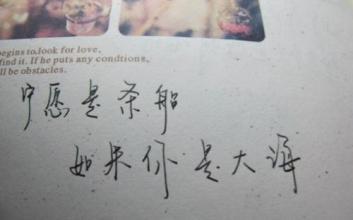 begins to look for love,
find it. If he puts any condtions,
ll be obstacles.
宁愿是条船
如果你是大海